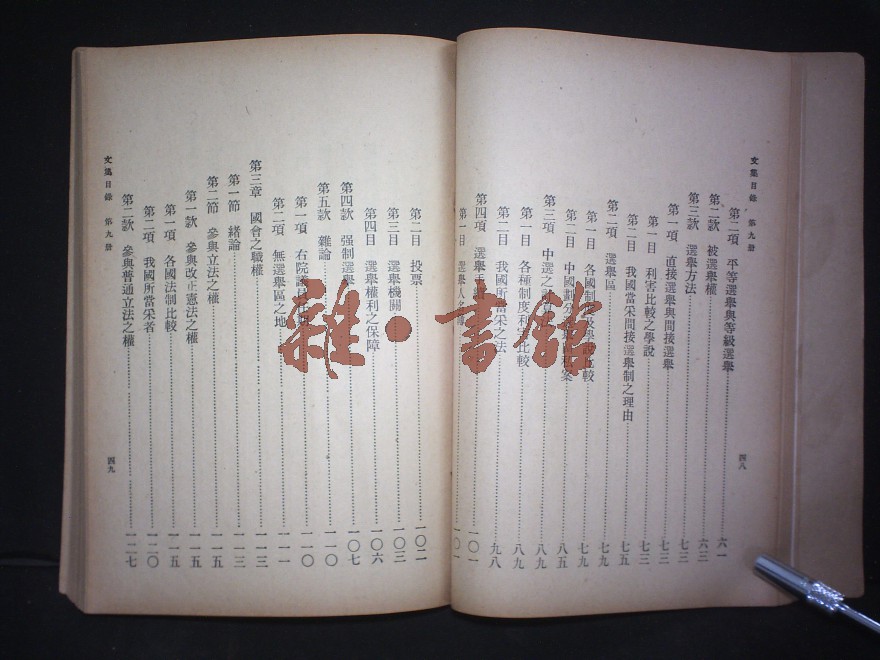 文集目錄 第九册
四八
第二項 平等選舉與等級選舉……六一
第二款 被選舉權……六三
第三款 選舉方法……七三
第一項 直接選舉與間接選舉……七三
第一目 利害比較之學說……七三
第二目 我國當采間接選舉制之理由……七五
第二項 選舉區……七九
第一目 各國制度及學說比較……七九
第二目 中國劃分……案……八五
第三項 中選之……八九
第一目 各種制度利害比較……八九
第二目 我國所當采之法……九八
第四項 選舉手續……一〇一
第一目 選舉人名簿……一〇一
第二目 投票……一〇二
第三目 選舉機關……一〇三
第四目 選舉權利之保障……一〇六
第四款 强制選舉……一〇七
第五款 雜論……一一〇
第一項 右院議員……一一〇
第二項 無選舉區之地……一一一
第三章 國會之職權……一一三
第一節 緒論……一一三
第二節 參與立法之權……一一五
第一款 參與改正憲法之權……一一五
第一項 各國法制比較……一一五
第二項 我國所當采者……一二〇
第二款 參與普通立法之權……一二七
文集目錄 第九册
四九
雜·書館